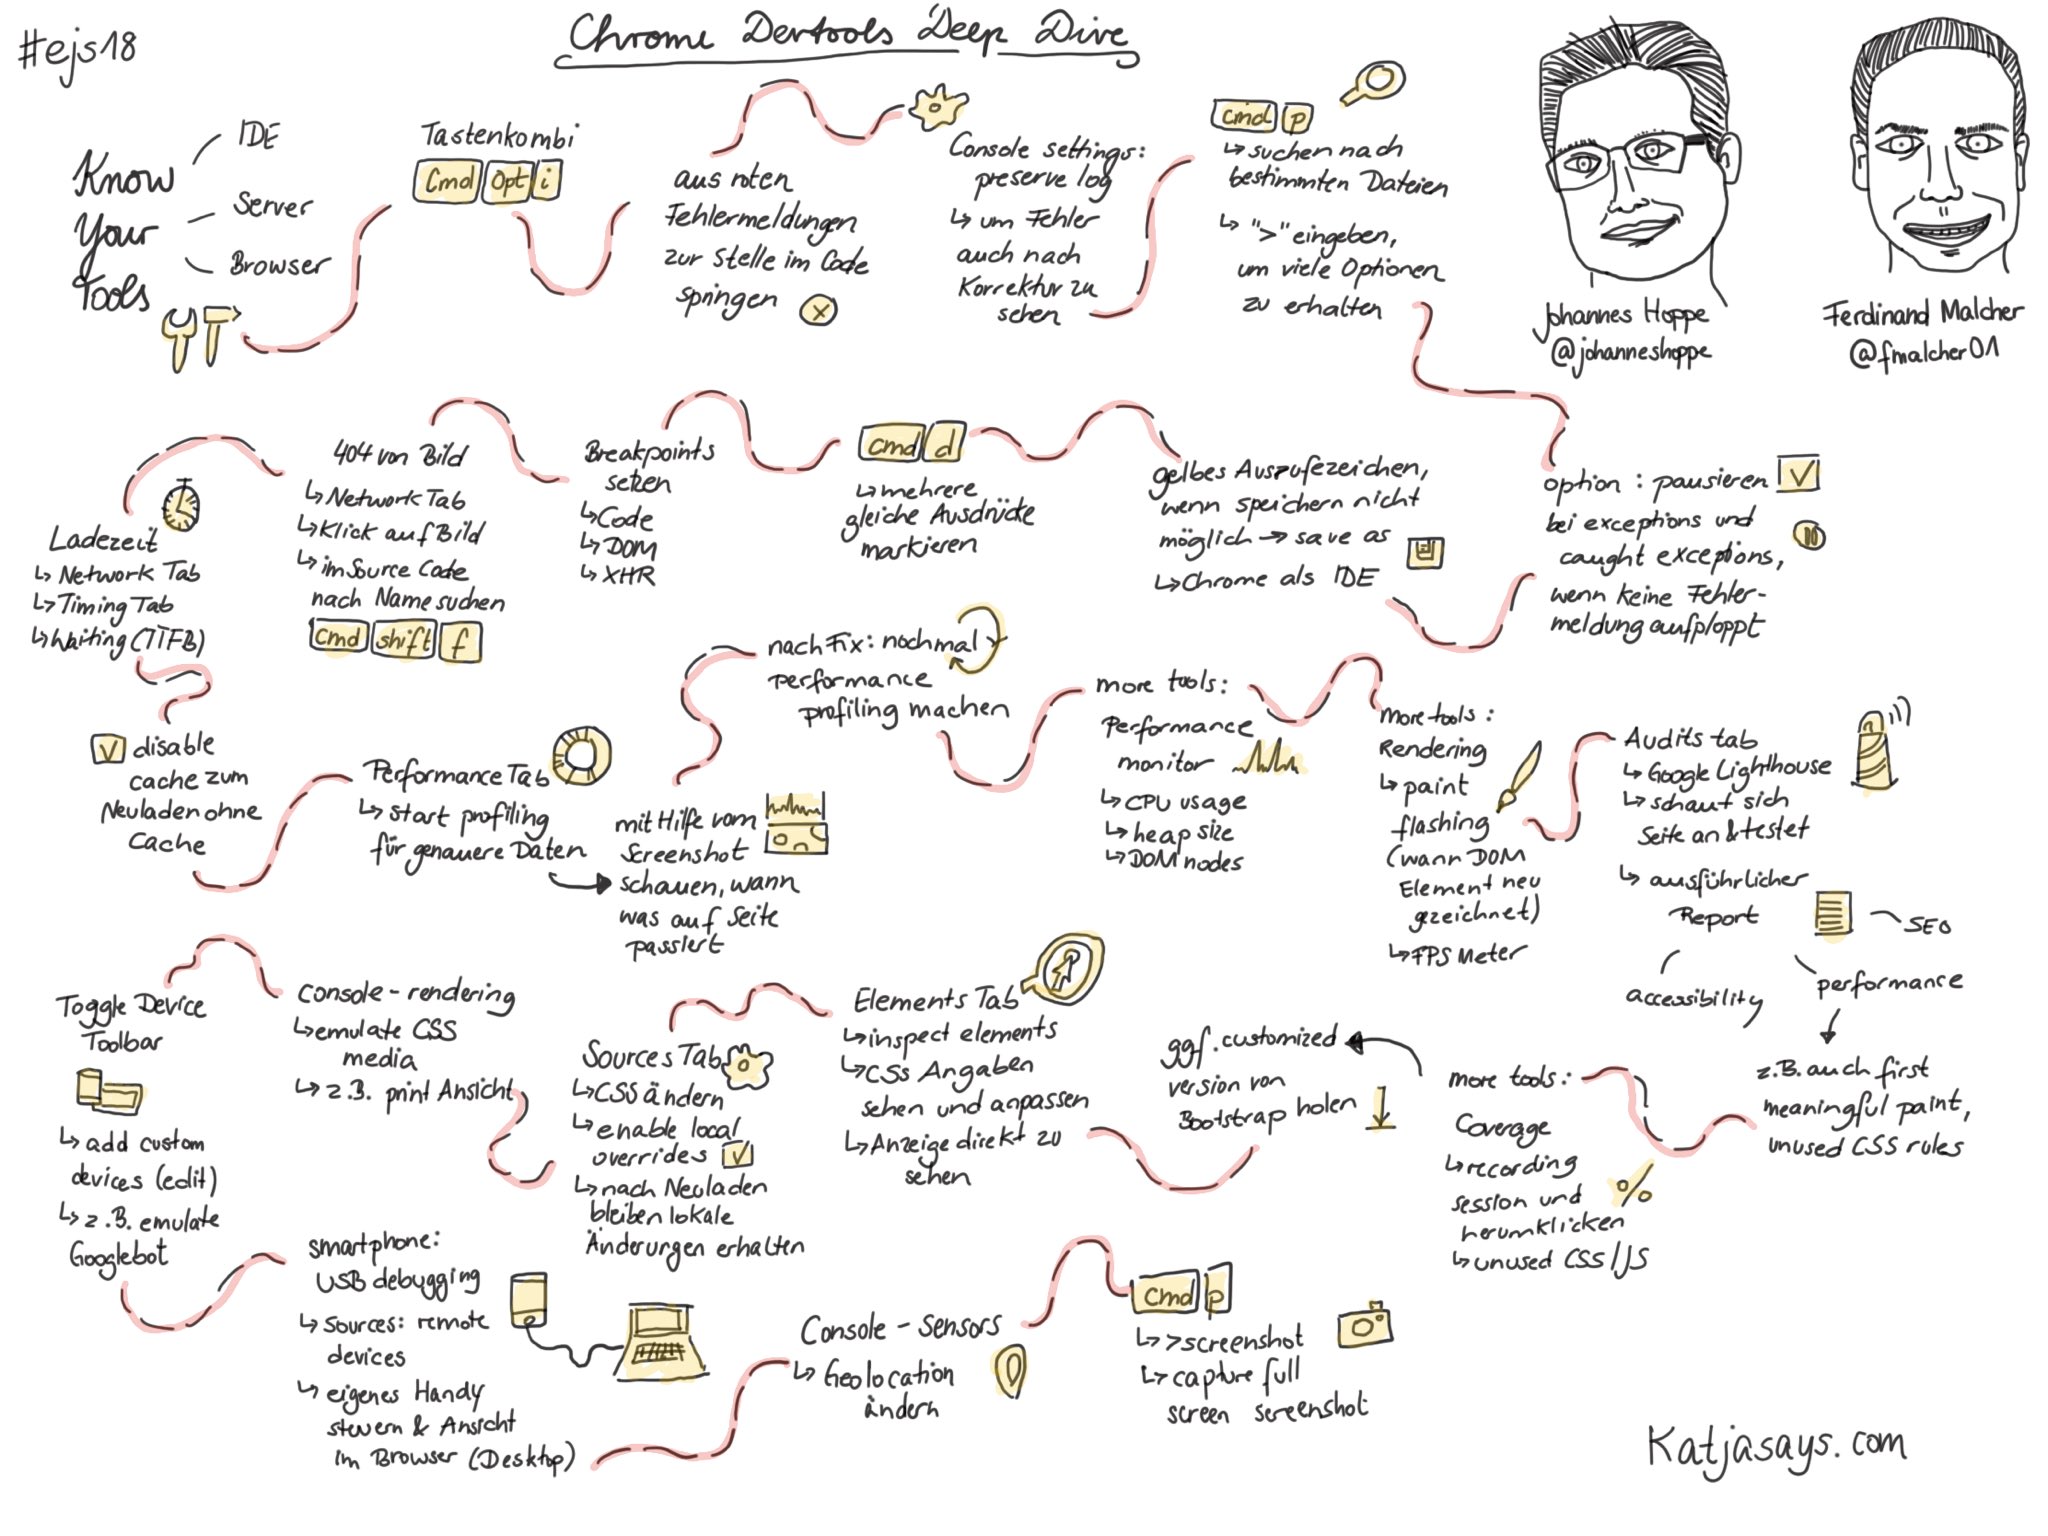 #ejs18
Chrome Devtools Deep Dive
Know
Your
Tools
IDE
Server
Browser
Tastenkombi
Cmd Opt i
aus roten
Fehlermeldungen
zur Stelle im Code
springen
Console settings:
preserve log
↳ um Fehler
auch nach
Korrektur zu
sehen
cmd p
↳ suchen nach
bestimmten Dateien
↳ ">" eingeben,
um viele Optionen
zu erhalten
Johannes Hoppe
@johanneshoppe
Ferdinand Malcher
@fmalcher01
option: pausieren
bei exceptions und
caught exceptions,
wenn keine Fehler-
meldung aufploppt
gelbes Ausrufezeichen,
wenn speichern nicht
möglich → save as
↳ Chrome als IDE
cmd d
↳ mehrere
gleiche Ausdrücke
markieren
Breakpoints
setzen
↳ Code
↳ DOM
↳ XHR
404 von Bild
↳ Network Tab
↳ Klick auf Bild
↳ im Source Code
nach Name suchen
cmd shift f
Ladezeit
↳ Network Tab
↳ Timing Tab
↳ Waiting (TTFB)
disable
cache zum
Neuladen ohne
Cache
Performance Tab
↳ start profiling
für genauere Daten
mit Hilfe vom
Screenshot
schauen, wann
was auf Seite
passiert
nach Fix: nochmal
performance
profiling machen
more tools:
Performance
monitor
↳ CPU usage
↳ heap size
↳ DOM nodes
more tools:
Rendering
↳ paint
flashing
(wann DOM
Element neu
gezeichnet)
↳ FPS Meter
Audits tab
↳ Google Lighthouse
↳ schaut sich
Seite an & testet
↳ ausführlicher
Report
SEO
accessibility
performance
z.B. auch first
meaningful paint,
unused CSS rules
more tools:
Coverage
↳ recording
session und
herumklicken
↳ unused CSS/JS
ggf. customized
version von
Bootstrap holen
Elements Tab
↳ inspect elements
↳ CSS Angaben
sehen und anpassen
↳ Anzeige direkt zu
sehen
Sources Tab
↳ CSS ändern
↳ enable local
overrides
↳ nach Neuladen
bleiben lokale
Änderungen erhalten
Console - rendering
↳ emulate CSS
media
↳ z.B. print Ansicht
Toggle Device
Toolbar
↳ add custom
devices (edit)
↳ z.B. emulate
Googlebot
smartphone:
USB debugging
↳ sources: remote
devices
↳ eigenes Handy
steuern & Ansicht
im Browser (Desktop)
Console - Sensors
↳ Geolocation
ändern
Cmd p
↳ >screenshot
↳ capture full
screen screenshot
Katjasays.com